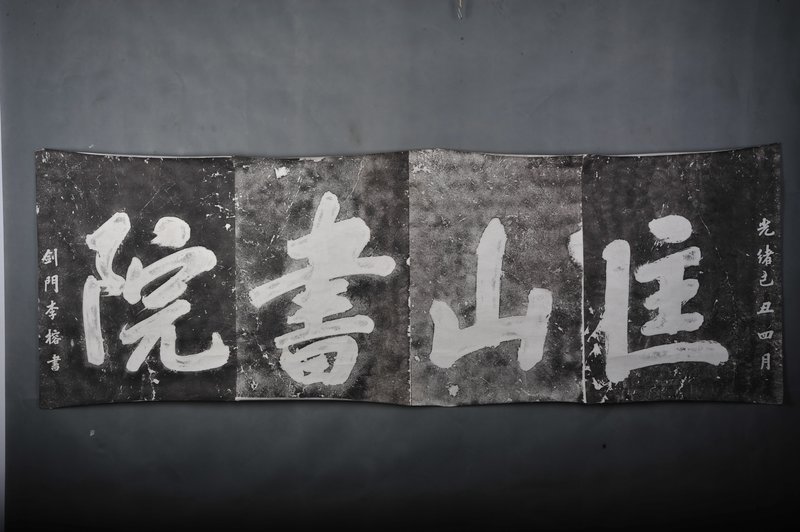 光緒己丑四月
匡山書院
劍門李榕書